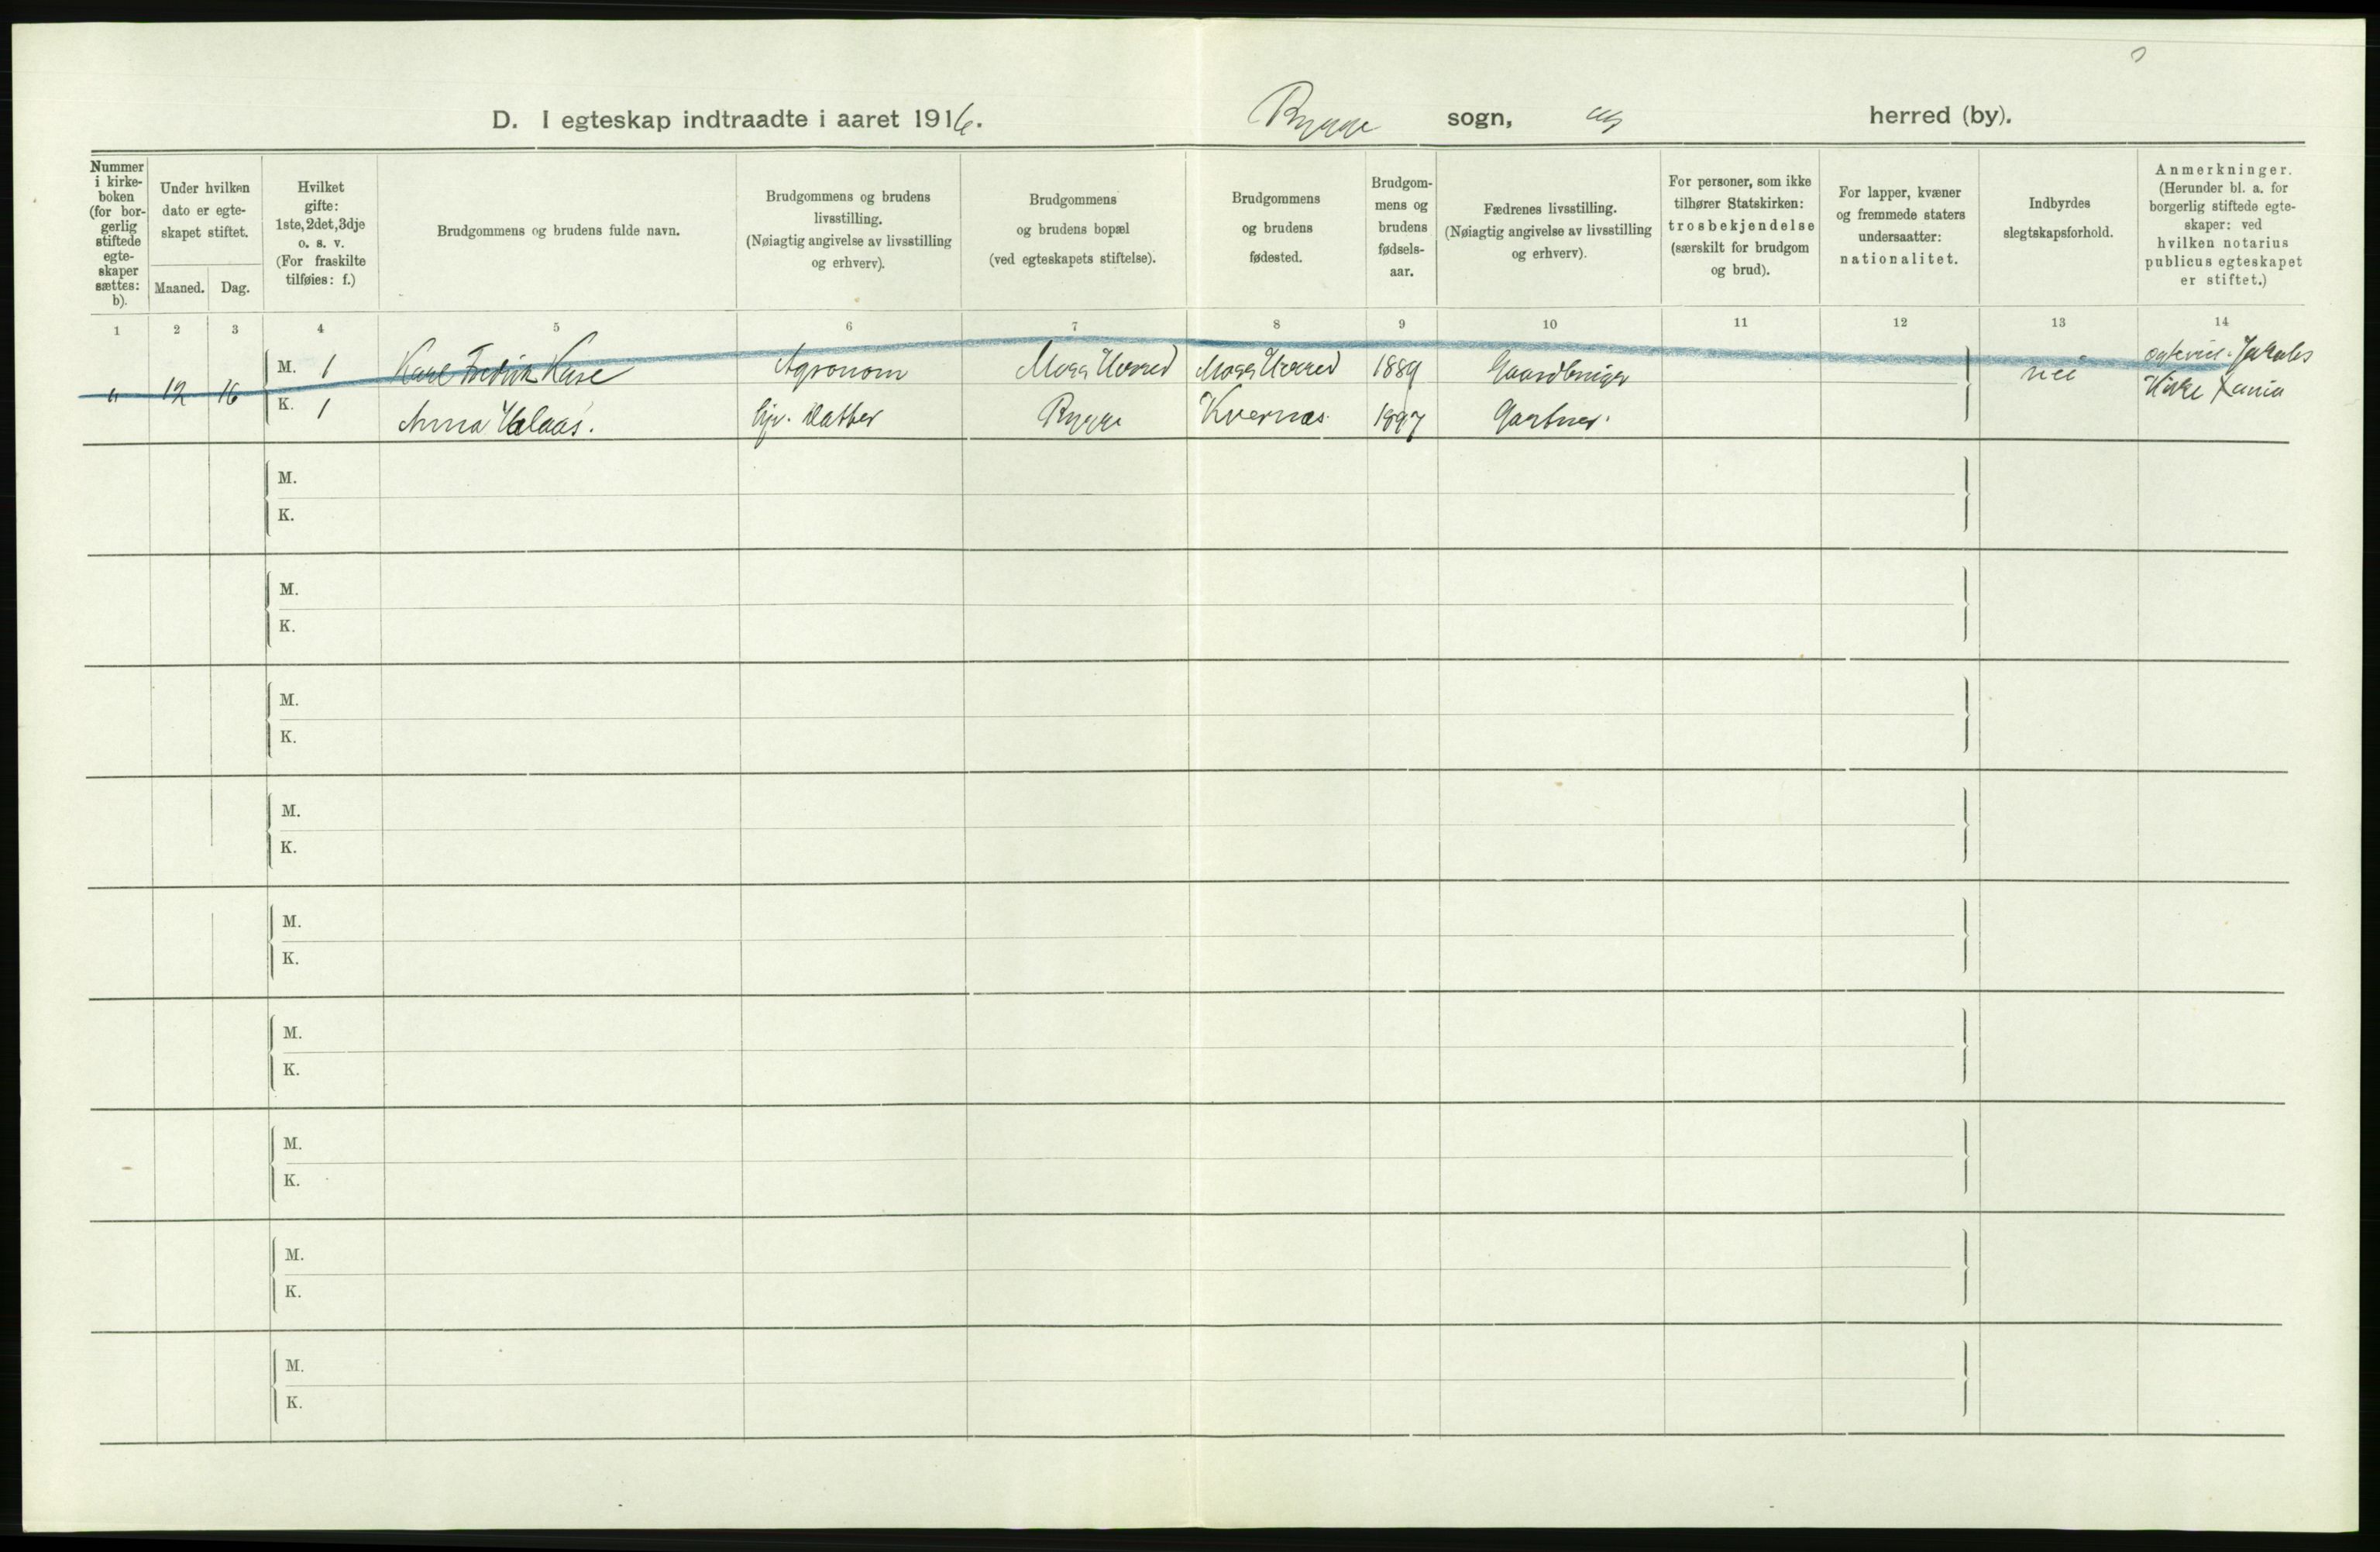 D. I egteskap indtraadte i aaret 1916. Rygge sogn, herred (by).
Nummer
i kirke-
boken
(for bor-
gerlig
stiftede
egte-
skaper
sættes:
b).
Under hvilken
dato er egte-
skapet stiftet.
Maaned. Dag.
Hvilket
gifte:
1ste, 2det, 3dje
o. s. v.
(For fraskilte
tilføies: f.)
Brudgommens og brudens fulde navn.
Brudgommens og brudens
livsstilling.
(Nøiagtig angivelse av livsstilling
og erhverv).
Brudgommens
og brudens bopæl
(ved egteskapets stiftelse).
Brudgommens
og brudens
fødested.
Brudgom-
mens og
brudens
fødsels-
aar.
Fædrenes livsstilling.
(Nøiagtig angivelse av livsstilling
og erhverv).
For personer, som ikke
tilhører Statskirken:
trosbekjendelse
(særskilt for brudgom
og brud).
For lapper, kvæner
og fremmede staters
undersaatter:
nationalitet.
Indbyrdes
slegtskapsforhold.
Anmerkninger.
(Herunder bl. a. for
borgerlig stiftede egte-
skaper: ved
hvilken notarius
publicus egteskapet
er stiftet.)
1 2 3 4 5 6 7 8 9 10 11 12 13 14
" 12 16
M. 1 Karl Fredrik Agronom Moss Herred Moss Herred 1889 Gaardbruger nei Jakobs
K. 1 Anna Datter Rygge Kvernæs 1897 Gartner. Kirke Xania
M.
K.
M.
K.
M.
K.
M.
K.
M.
K.
M.
K.
M.
K.
M.
K.
M.
K.